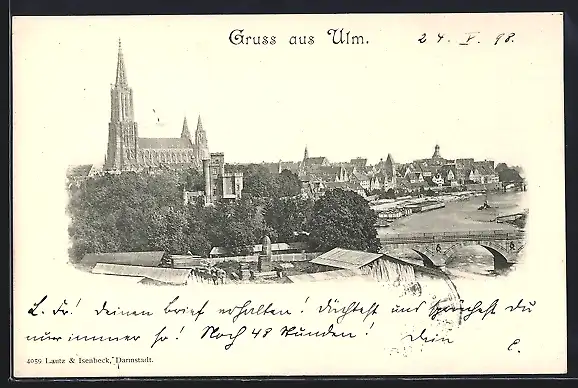 Gruss aus Ulm.
24. V. 98.
L. Fr! Deinen Brief erhalten! Dichtest und sprichst Du
nur immer so! Noch 48 Stunden! Dein
C.
4059 Lautz & Isenbeck, Darmstadt.